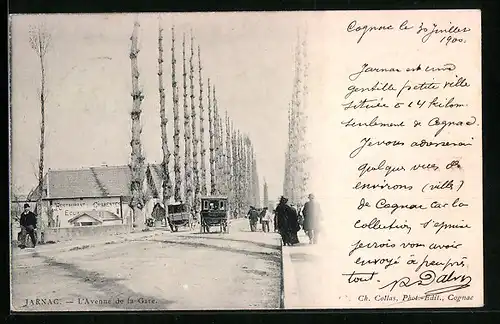 Cognac le 30 Juillet
1900.
Jarnac est une
gentille petite ville
située à 14 kilom.
seulement de Cognac.
Je vous adresserai
quelques vues des
environs (ville)
de Cognac car la
collection s'épuise
je crois vous avoir
envoyé à peu près
tout.
RESTAURANT CHARENTON
JARNAC. - L'Avenue de la Gare.
Ch. Collas, Phot.-Édit., Cognac